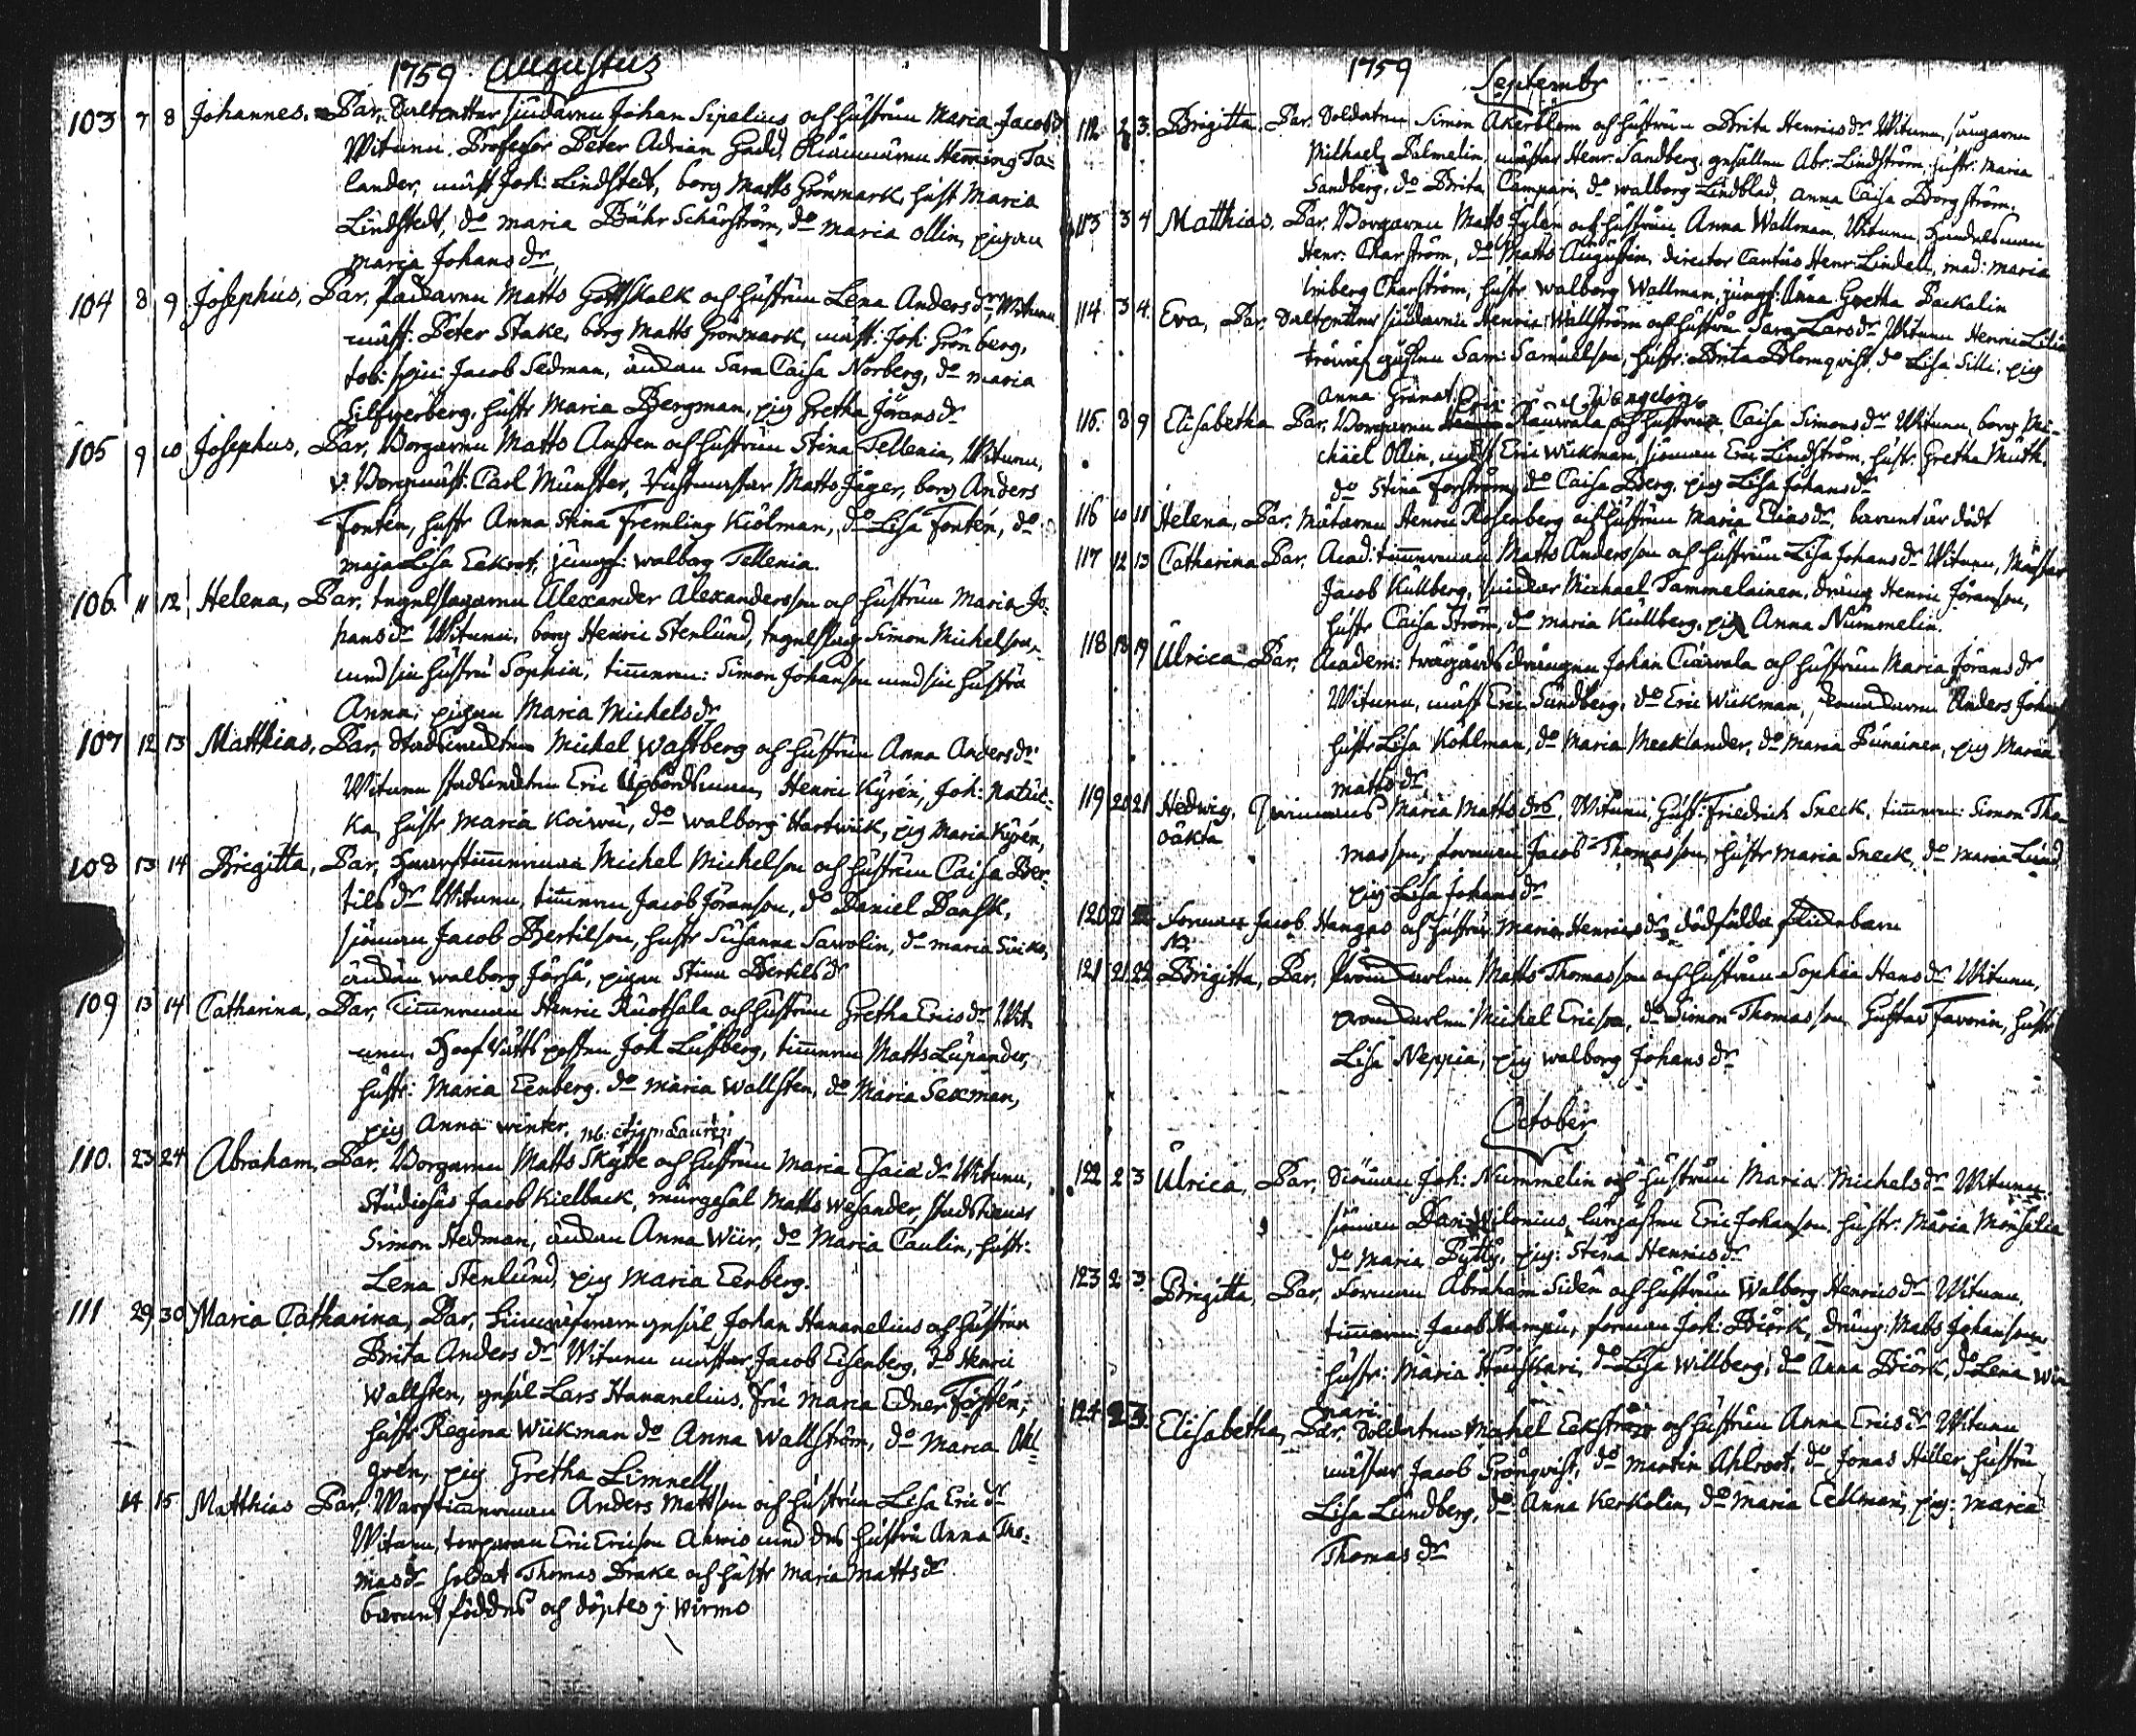 1759. Augustus
103 7 8 Johannes. Par. Saltpetter siudaren Johan Sipelius och hustrun Maria Jacobs dr
Witnen. Profesor Peter Adrian Gadd, Henning Ta-
lander, mäst Joh: Lindstedt, borg Matts Grönmark, hust Maria
Lindstedt, do maria Bähr Schärström, do maria Ollin, pigan
maria Johans dr
104 8 9 Josephus, Par, Matts Gottskalk och hustrun Lena Anders dr, Witnen
mäst: Peter Stake, borg Matts Grönmark, mäst: Joh: Grönberg,
tob: spin: Jacob Sedman, änkan Sara Caisa Norberg, do maria
Silfwerberg, hustr Maria Bergman, pig Gretha Jörans dr
105 9 10 Josephus, Par, Borgaren Matts Ansten och hustrun Stina Tellenia, Witnen,
v: Borgmäst: Carl Münster, Rustmästar Matts Jäger, borg Anders
Fontén, hustr Anna Stina Fremling Kiölman, do Lisa Fontén, do
maja Lisa Eekrot, jungf: walborg Tellenia.
106 11 12 Helena, Par, tegelslagaren Alexander Alexandersson och hustrun Maria Jo-
hans dr Witnen, borg Henric Stenlund, tegelslag Simon Michelson,
med sin hustru Sophia, timmerm: Simon Johanson med sin hustru
Anna, pigan Maria Michels dr
107 12 13 Matthias, Par, Michel Wastberg och hustrun Anna Anders dr
Witnen Eric Upbördsman, Henric Kyrén, Joh: Natus-
ka, hustr Maria Koiwu, do walborg Hartwiik, pig Maria Kyrén,
108 13 14 Brigitta, Par, Michel Michelson och hustrun Caisa Ber-
tils dr Witnen, timmerm Jacob Jöranson, do Daniel Dansk,
siöman Jacob Bertilson, hustr Susanna Sawolin, do maria
änkan walborg pigan Stina Bertils dr
109 13 14 Catharina, Par, Timmerman Henric Ruotsala och hustrun Gretha Erics dr Wit-
nen, Hofrätts Joh Lusberg, timmerm Matts Lupander,
hustr: Maria Eenberg, do maria Wallsten, do Maria Sexman,
pig Anna winter.
110. 23 24 Abraham, Par, Borgaren Matts Skytte och hustrun Maria Esaiæ dr Witnen,
Studiosus Jacob Kielback, murgesäl Matts Wesander, stadstienar
Simon Hedman, änkan Anna Wiir, do Maria Caulin, hustr:
Lena Stenlund, pig Maria Eenberg.
111 29 30 Maria Catharina, Par, gesäl Johan Hananelius och hustrun
Brita Anders dr Witnen mästar Jacob Eisenberg, do Henric
Wallsten, gesäl Lars Hananelius, fru maria Edner Forstén,
hustr Regina Wiikman do Anna Wallström, do Maria Ahl-
grén, pig Gretha Limnell
14 15 Matthias Par, Warfstimmerman Anders Mattson och hustrun Lisa Eric dr
Witnen, torparen Eric Ericson Ahwio med dess hustru Anna Tho-
mas dr soldat Thomas Drake och hustr maria Matts dr
barnet föddes och döptes i Wirmo
1759 Septembr
112 2 3. Brigitta, Par, Soldaten Simon Åkerblom och hustrun Brita Henrics dr Witnen,
Michael Palmelin, mästar Henr: Sandberg, gesällen Abr: Lindström, hustr: maria
Sandberg, do Brita Campari, do walborg Lindblad, Anna Caisa Borgström.
113 3 4 Matthias. Par, Borgaren Matts och hustrun Anna Wallman, Witnen, Handelsman
Henr: Charström, do Matts Augustin, director Cantus Henr Lindell, mad: maria
Charström, hustr walborg Wallman, jungf: Anna Gretha Packalin
114. 3 4. Eva, Par, Saltpetter siudaren Henric Wallström och hustrun Sara Lars dr Witnen Henric
Sam: Samuelson, hustr: Brita Blomqvist, do Lisa Silli, pig
Anna Granat.
115. 8 9 Elisabetha Par, Borgaren Eric Rauwala och hustrun Caisa Simons dr Witnen, borg Mi-
chäel Ollin, mäst Eric Wiikman, siöman Eric Lindström, hustr Gretha Muth.
do Stina Forström, do Caisa Berg, pig Lisa Johans dr
116 10 11 Helena, Par, Henric Rosenberg och hustrun Maria Elias dr, barnet är dödt
117 12 13 Catharina Par, Acad: timmerman Matts Andersson och hustrun Lisa Johans dr Witnen, Mästar
Jacob Kullberg, Michael Tammelainen, dräng Henric Jöranson,
hustr Caisa Ström, do maria Kullberg, pig Anna Nummelin.
118 18 19 Ulrica Par, Academ: trägårds drängen Johan Ciärwala och hustrun Maria Jörans dr
Witnen, mäst Eric Sundberg, do Eric Wiikman, Anders Johans
hustr Lisa Kohlman, do Maria Mecklander, do Maria Punainen, pig Maria
matts dr
119 20 21 Hedwig, Maria Matts drs, Witnen, Friedrich Sneck, timmerm: Simon Tho-
oäkta masson, forman Jacob Thomasson, hustr maria Sneck, do maria Lund,
pig Lisa Johans dr
120 21 Forman Jacob Hangas och hustrun Maria Henrics drs dödfödda flickebarn
121 21 22 Brigitta, Par, Matts Thomasson och hustrun Sophia Hans dr Witnen,
Michel Ericson, do Simon Thomasson, Gustav Favorin, hustr
Lisa Neppia, pig walborg Johans dr
October
122 2 3 Ulrica, Par, Siöman Joh: Nummelin och hustrun Maria Michels dr Witnen
siöman Eric Johanson, hustr: Maria Monselia
do Maria pig: Stina Henrics dr
123 2 3 Brigitta, Par, Forman Abraham Sidén och hustrun Walborg Henrics dr Witnen,
timmerm: Jacob Hampu, forman Joh: Biörk, dräng: Matts Johanson
hustr: Maria do Lisa Willberg, do Anna Biörk, do Lena Win-
nari.
124 2 3. Elisabetha, Par, Soldaten Michel Eekström och hustrun Anna Erics dr Witnen
mästar Jacob Grönqvist, do Martin Ahlroot, do Jonas Hiller, hustru
Lisa Lundberg, do Anna Kerkolin, do Maria Eekman, pig: maria
Thomas dr